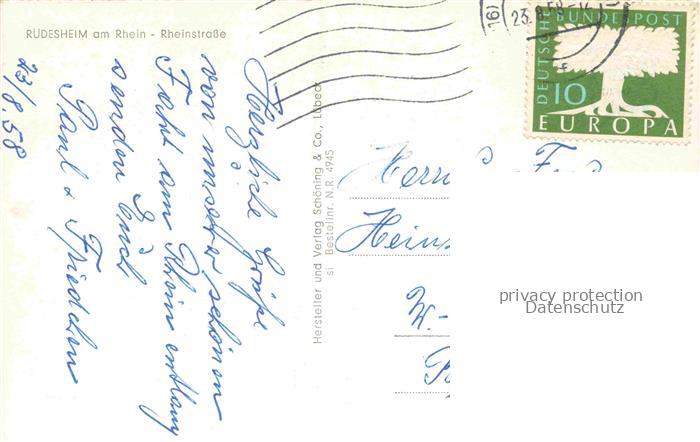 RÜDESHEIM am Rhein - Rheinstraße
23/8.58
Herzliche Grüße
von unserer schönen
Fahrt am Rhein entlang
senden Euch
Paul & Friedchen
Hersteller und Verlag Schöning & Co., Lübeck
si Bestellnr. N.R. 4945
(16)
23.8.58
DEUTSCHE BUNDESPOST
10
EUROPA
Herrn
W.-
privacy protection
Datenschutz